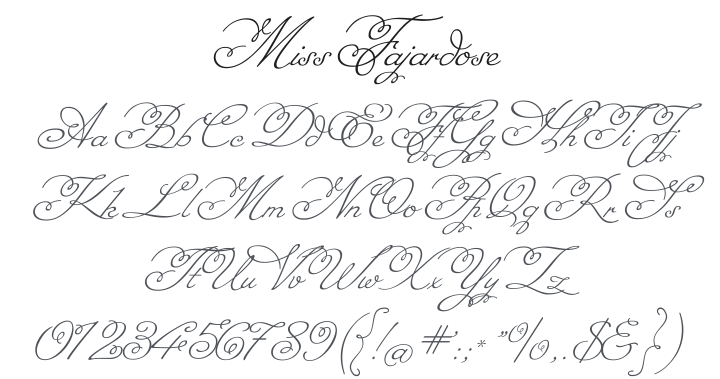 Miss Fajardose
Aa Bb Cc Dd Ee Ff Gg Hh Ii Jj
Kk Ll Mm Nn Oo Pp Qq Rr Ss
Tt Uu Vv Ww Xx Yy Zz
0123456789({!@#:;,*"%,.$&})